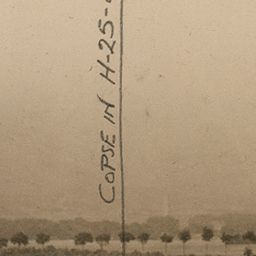 COPSE IN H-25-